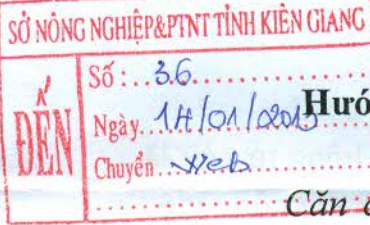 SỞ NÔNG NGHIỆP&PTNT TỈNH KIÊN GIANG
ĐẾN
Số : 36
Ngày 14/01/2013
Chuyển Web
Hướ
Căn c